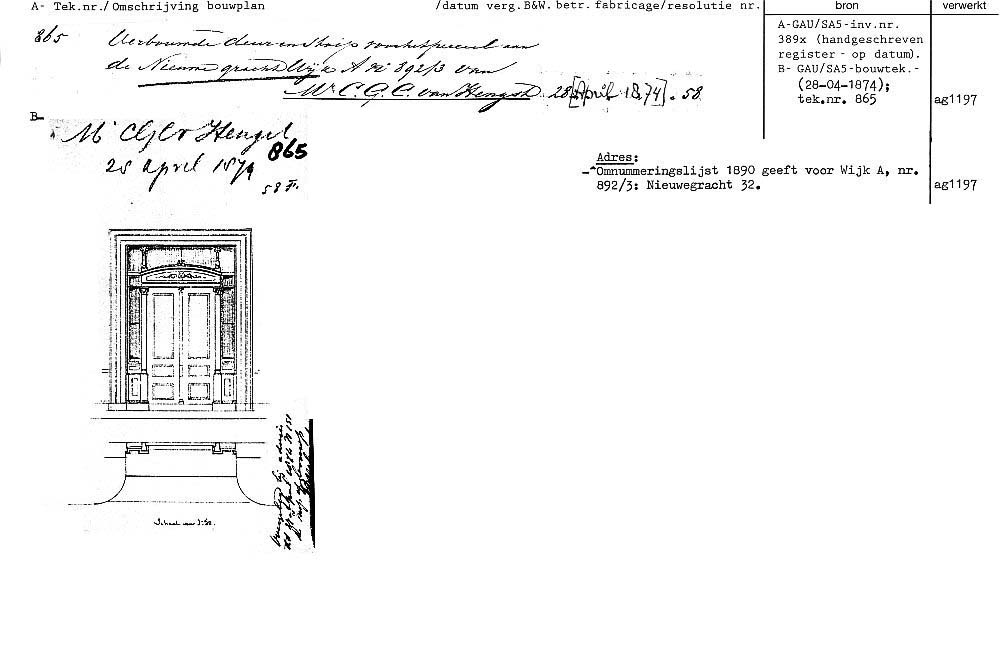 A- Tek.nr./ Omschrijving bouwplan /datum verg.B&W. betr. fabricage/resolutie nr. bron verwerkt
865 Verbouwde deur en stoep voor het perceel aan
de Nieuwe gracht Wijk A No 892/3 van
Mr. C. G. C. van Hengst. 28 [April 1874]. 58
A-GAU/SA5-inv.nr.
389x (handgeschreven
register - op datum).
B- GAU/SA5-bouwtek.-
(28-04-1874);
tek.nr. 865 ag1197
B-
Mr Hengel
865
28 april 1874
58
Adres:
-^Omnummeringslijst 1890 geeft voor Wijk A, nr.
892/3: Nieuwegracht 32. ag1197
Schaal